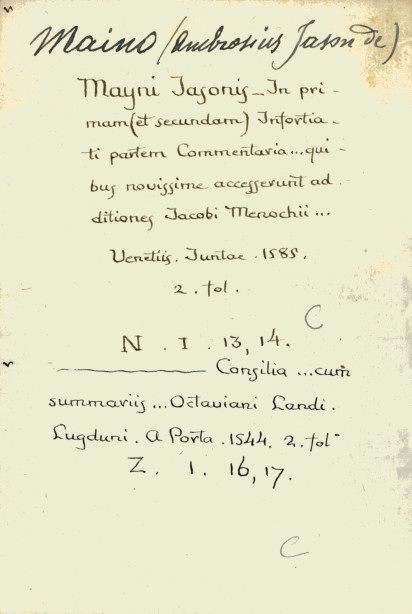 Maino (Ambrosius Jason de)
Mayni Jasonis _ In pri -
mam (et secundam) Infortia -
ti partem Commentaria ... qui -
bus novissime accesserunt ad
ditiones Jacobi Menochii ...
Venetiis . Juntae . 1585 .
2 . fol .
C
N . I . 13, 14 .
Consilia ... cum
summariis ... Octaviani Landi .
Lugduni . A Porta . 1544 . 2 . fol
Z . 1 . 16, 17 .
C